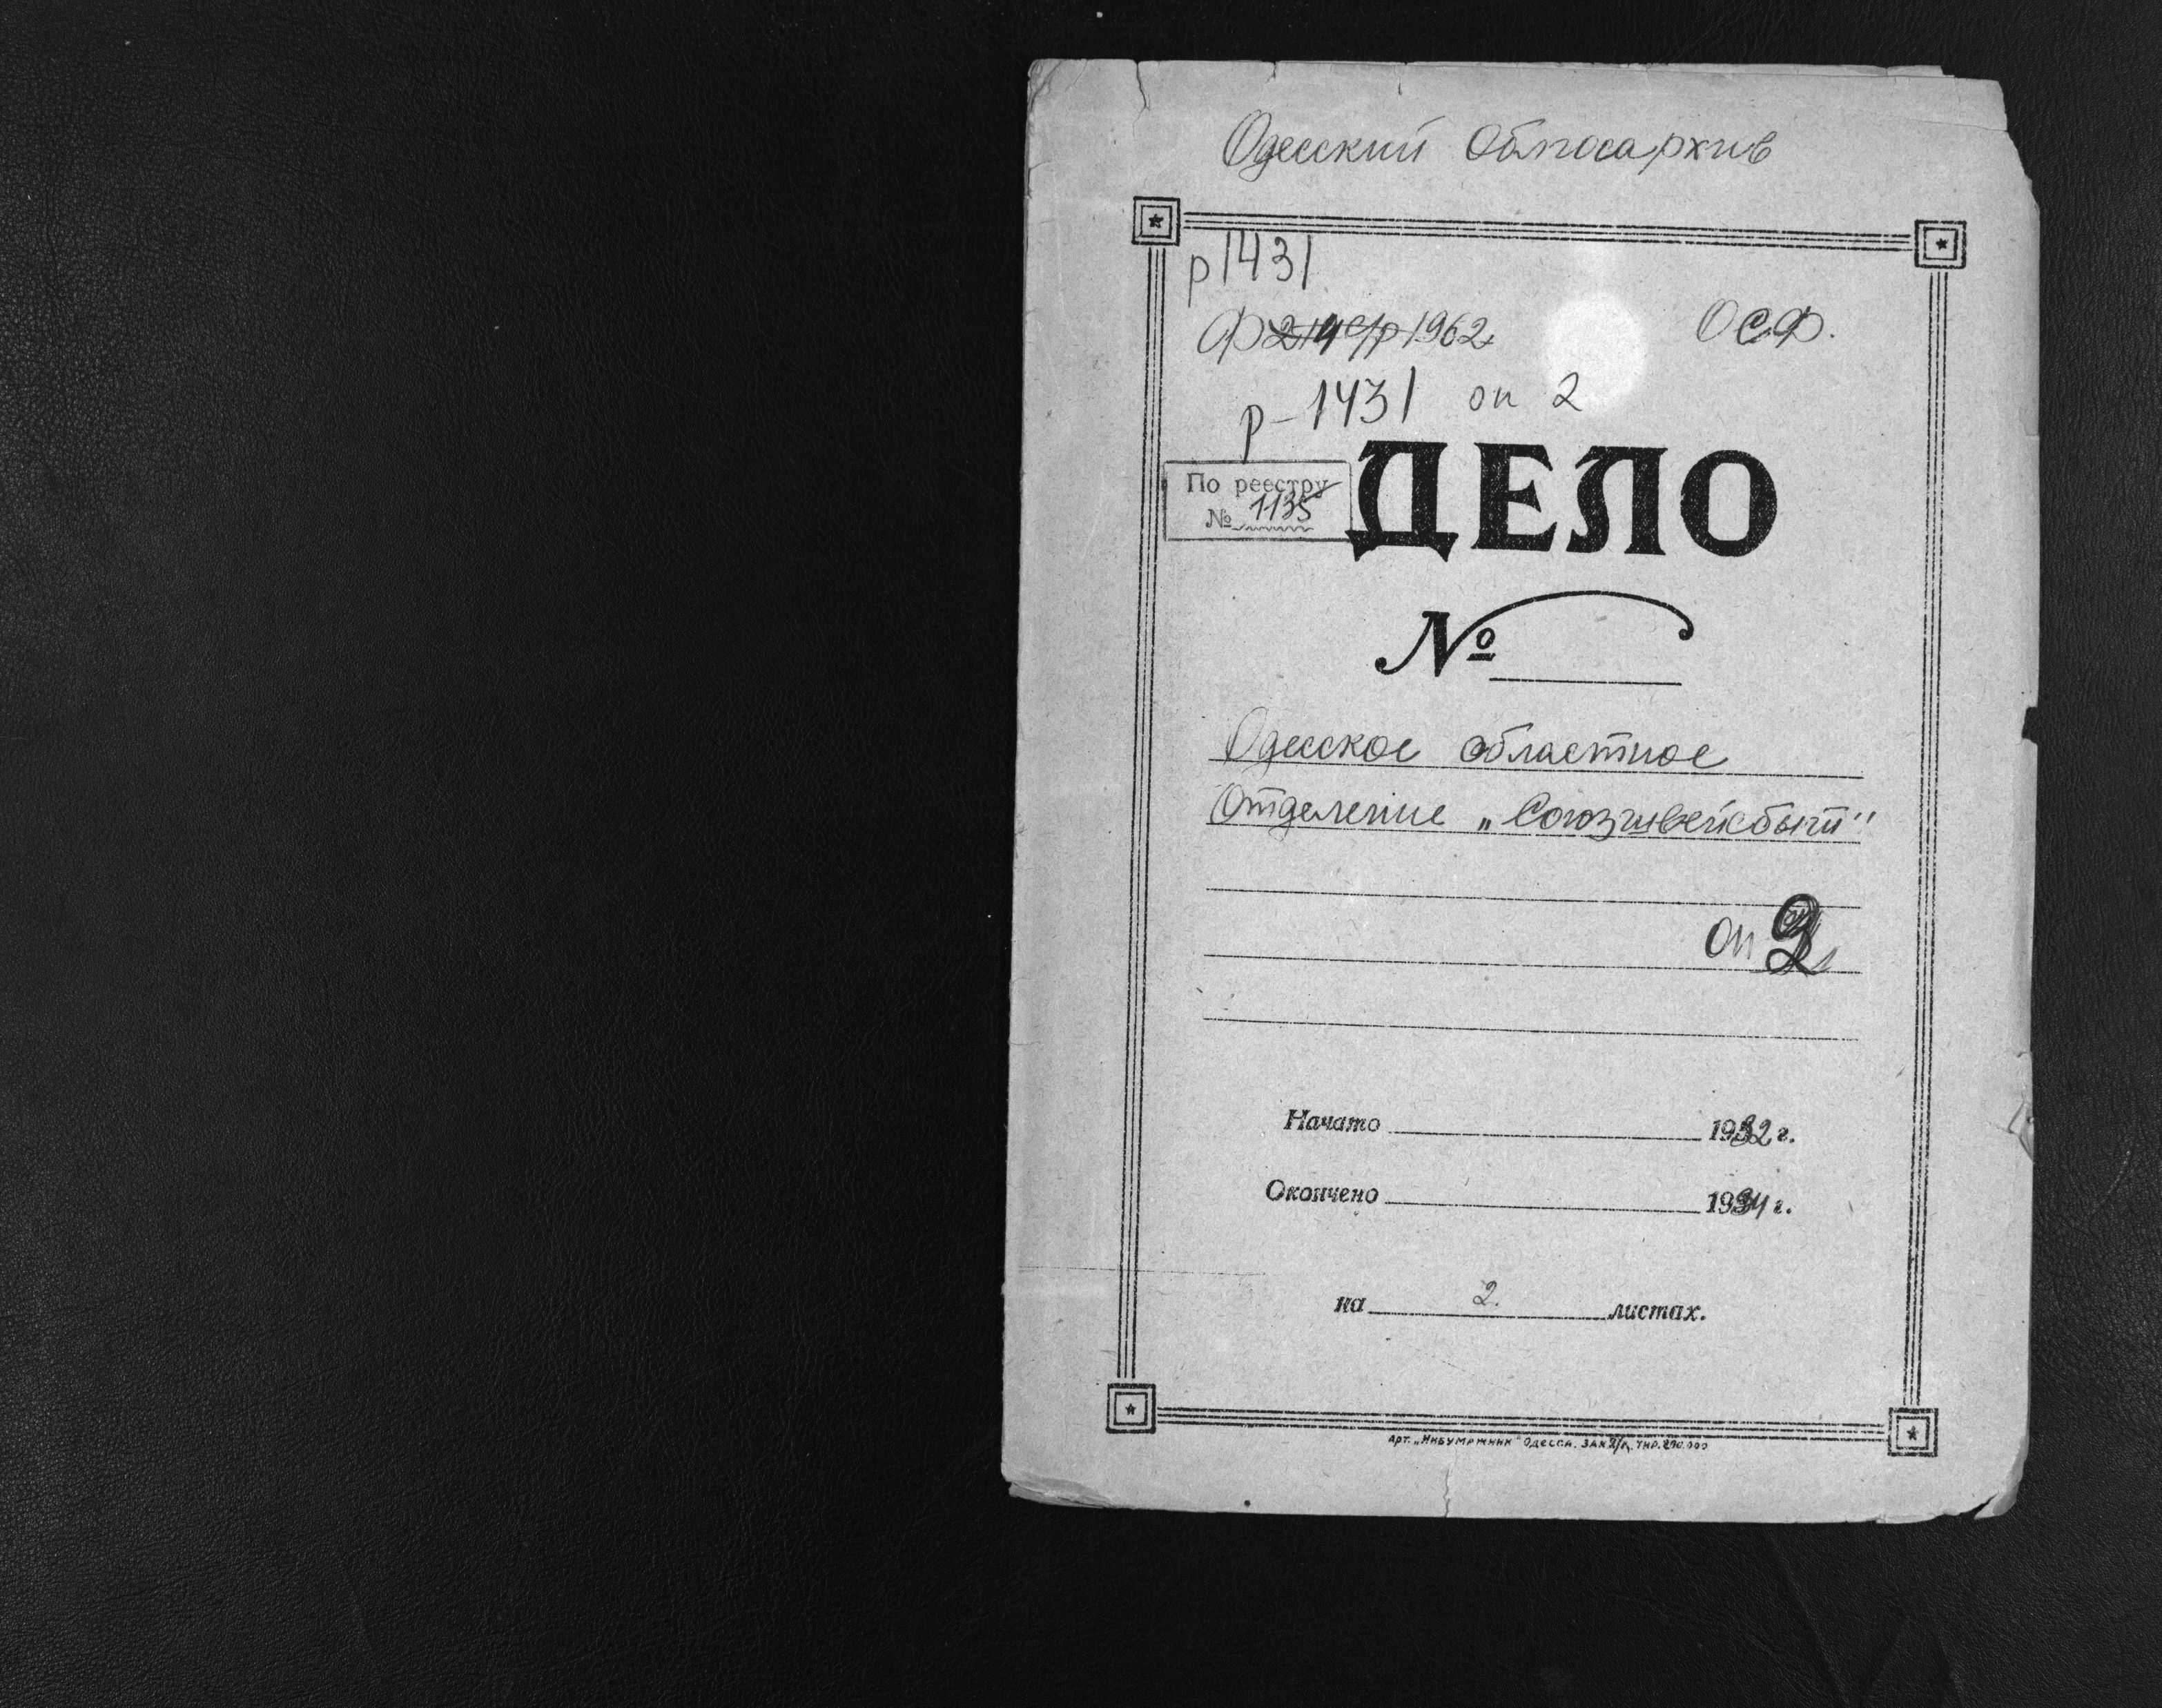 Одесский Облгосархив
р1431
Ф 214 с/р 1962
ОСФ.
р-1431 оп 2
По реестру
№ 1135
ДЕЛО
№
Одесское областное
Отделение „Союзшвейсбыт"
оп 2
Начато 1932 г.
Окончено 1934 г.
на 2. листах.
Арт. Одесса. Зак